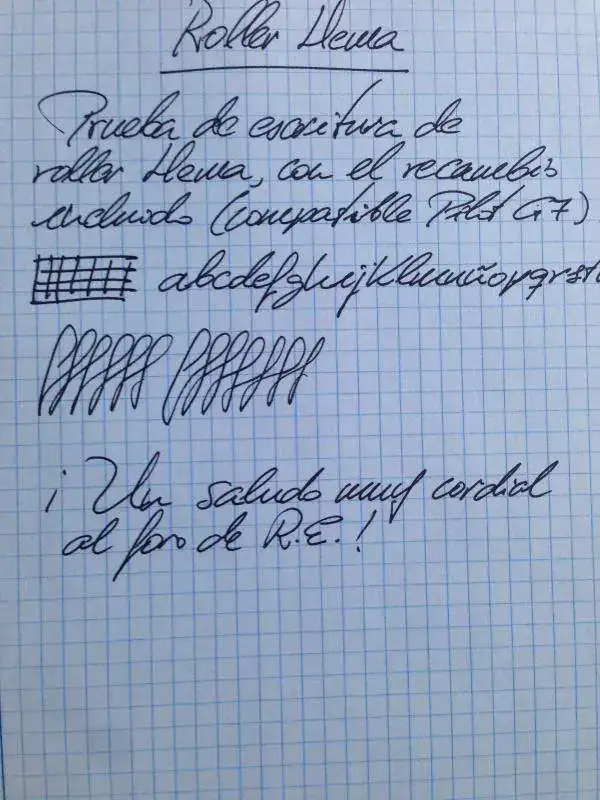 Roller Llema
Prueba de escritura de
roller Llema, con el recambio
incluido (compatible Pilot G7)
abcdefghijklmnñopqrst
¡Un saludo muy cordial
al foro de R.E.!